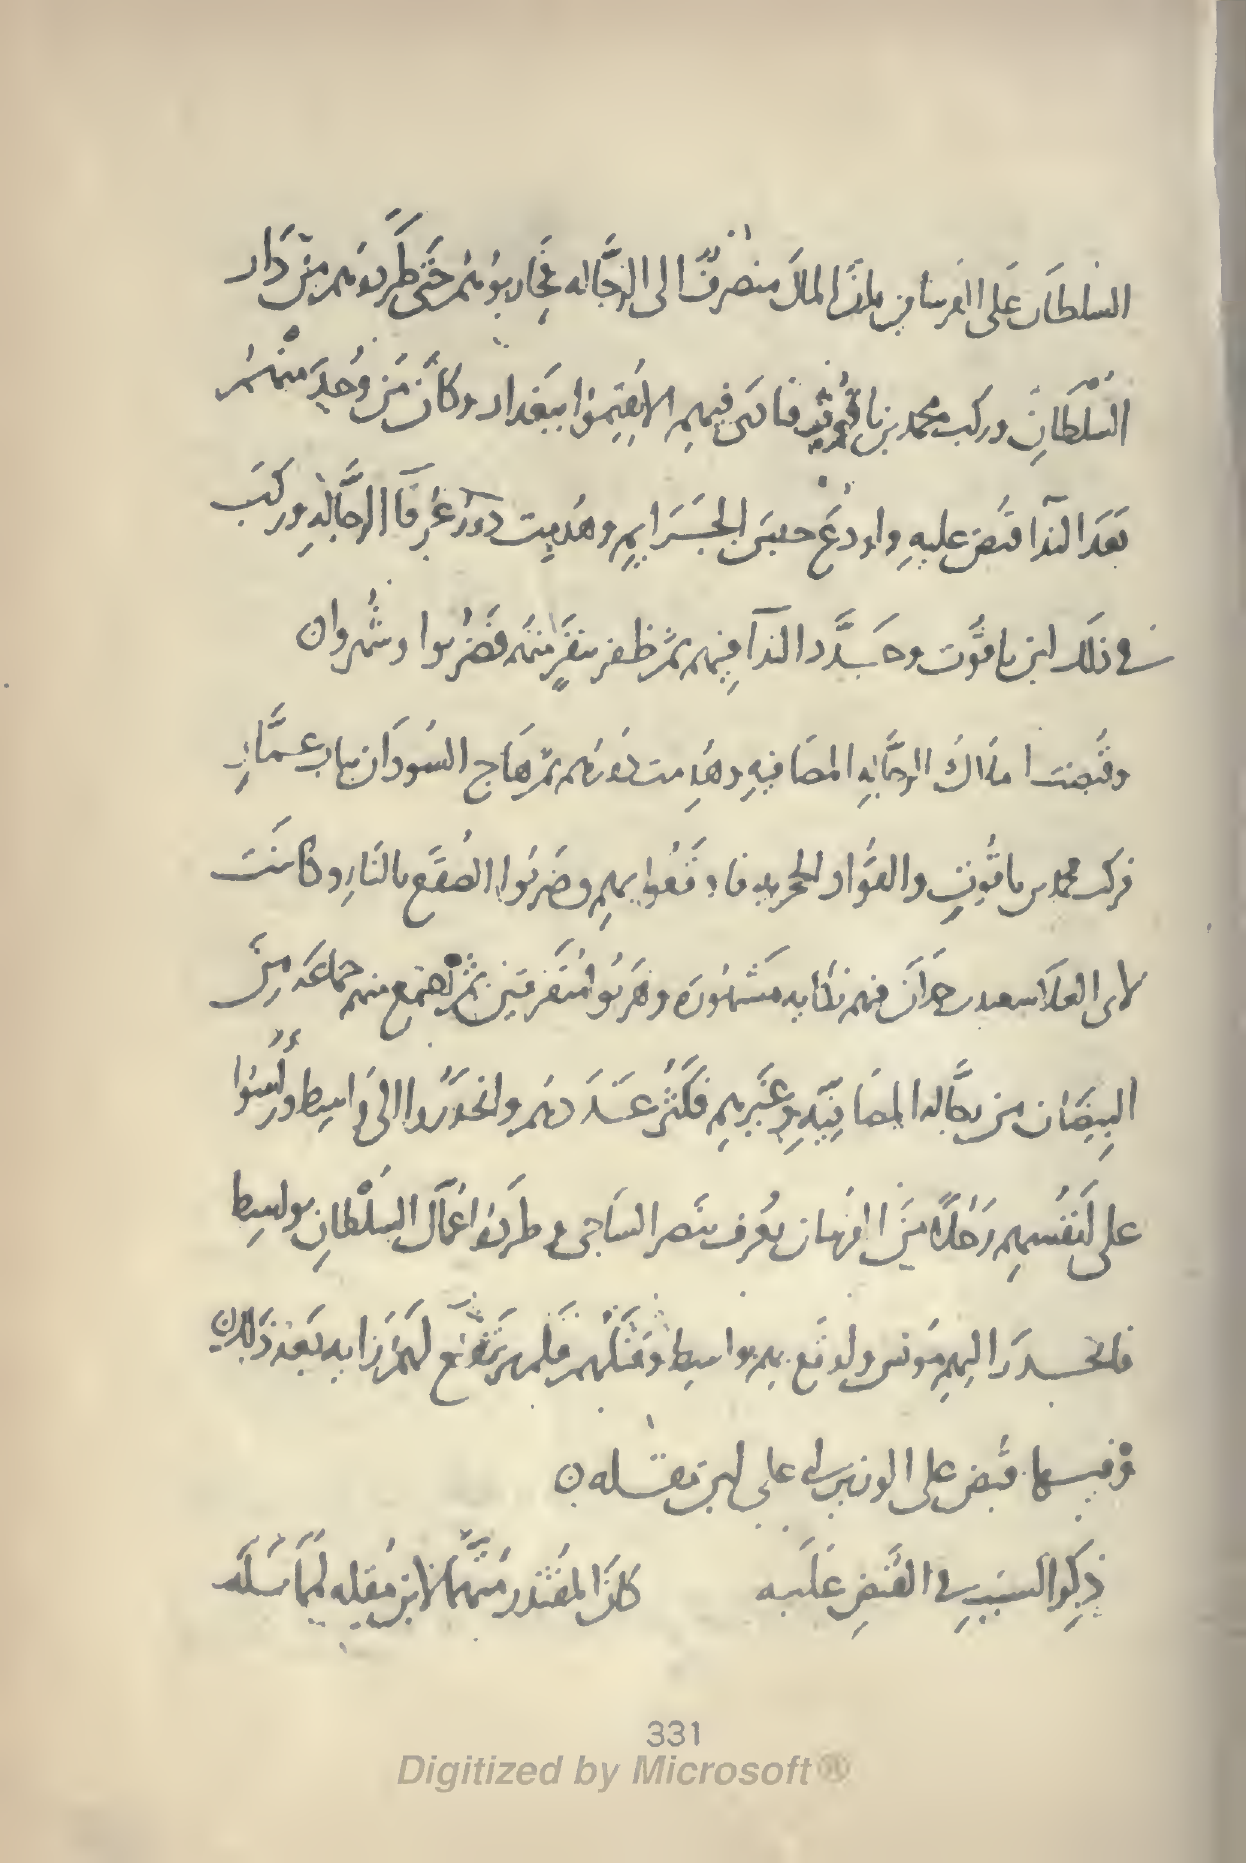 السلطان على الفرسان بان المال منصرف الى الرجاله فحاربوهم حتى طردوهم من دار
السلطان وركب محمد بن ياقوت فنادى فيهم الا يقيموا ببغداد وكان من وُجِدَ منهم
بَعدَ الندا قُبض عليه واودع حبس الجرايم وهُدِمت دور عُرفآ الرجاله وركب
فى ذلك ابن ياقوت وجدَّد الندآ فيهم ثم ظفر بنفر منهم فضُربوا وشُهروا ن
وقُبضت املاك الرجاله المصافيه وهُدِمت دورهم ثم هاج السُودان بباب عمَّار
فركب محمد بن ياقوت والقوَّاد الحجريه فاوقعوا بهم وضربوا الصُقع بالنار وكانت
لابى العلا سعيد بن حمدان فيهم نكايه مشهوره وهربُوا مُتفرقين ثم اجتمع منهم جماعه من
البيضان من رجاله المصافيّه وغيرهم فكثُر عددهم وانحدرُوا الى واسط ورأسوا
على انفسهم رجلاً من الفرسان يُعرف بنصر الساجى وطردوا عُمال السلطان بواسط
فانحدر اليهم مونس واوقع بهم بواسط وقتلهم فلم يرتفع لهم رايه بعد ذلك ن
وفيها قُبض على الوزير ابى على ابن مقله ن
ذِكر السبب فى القبض عليه كان المقتدر متهماً لابن مُقله